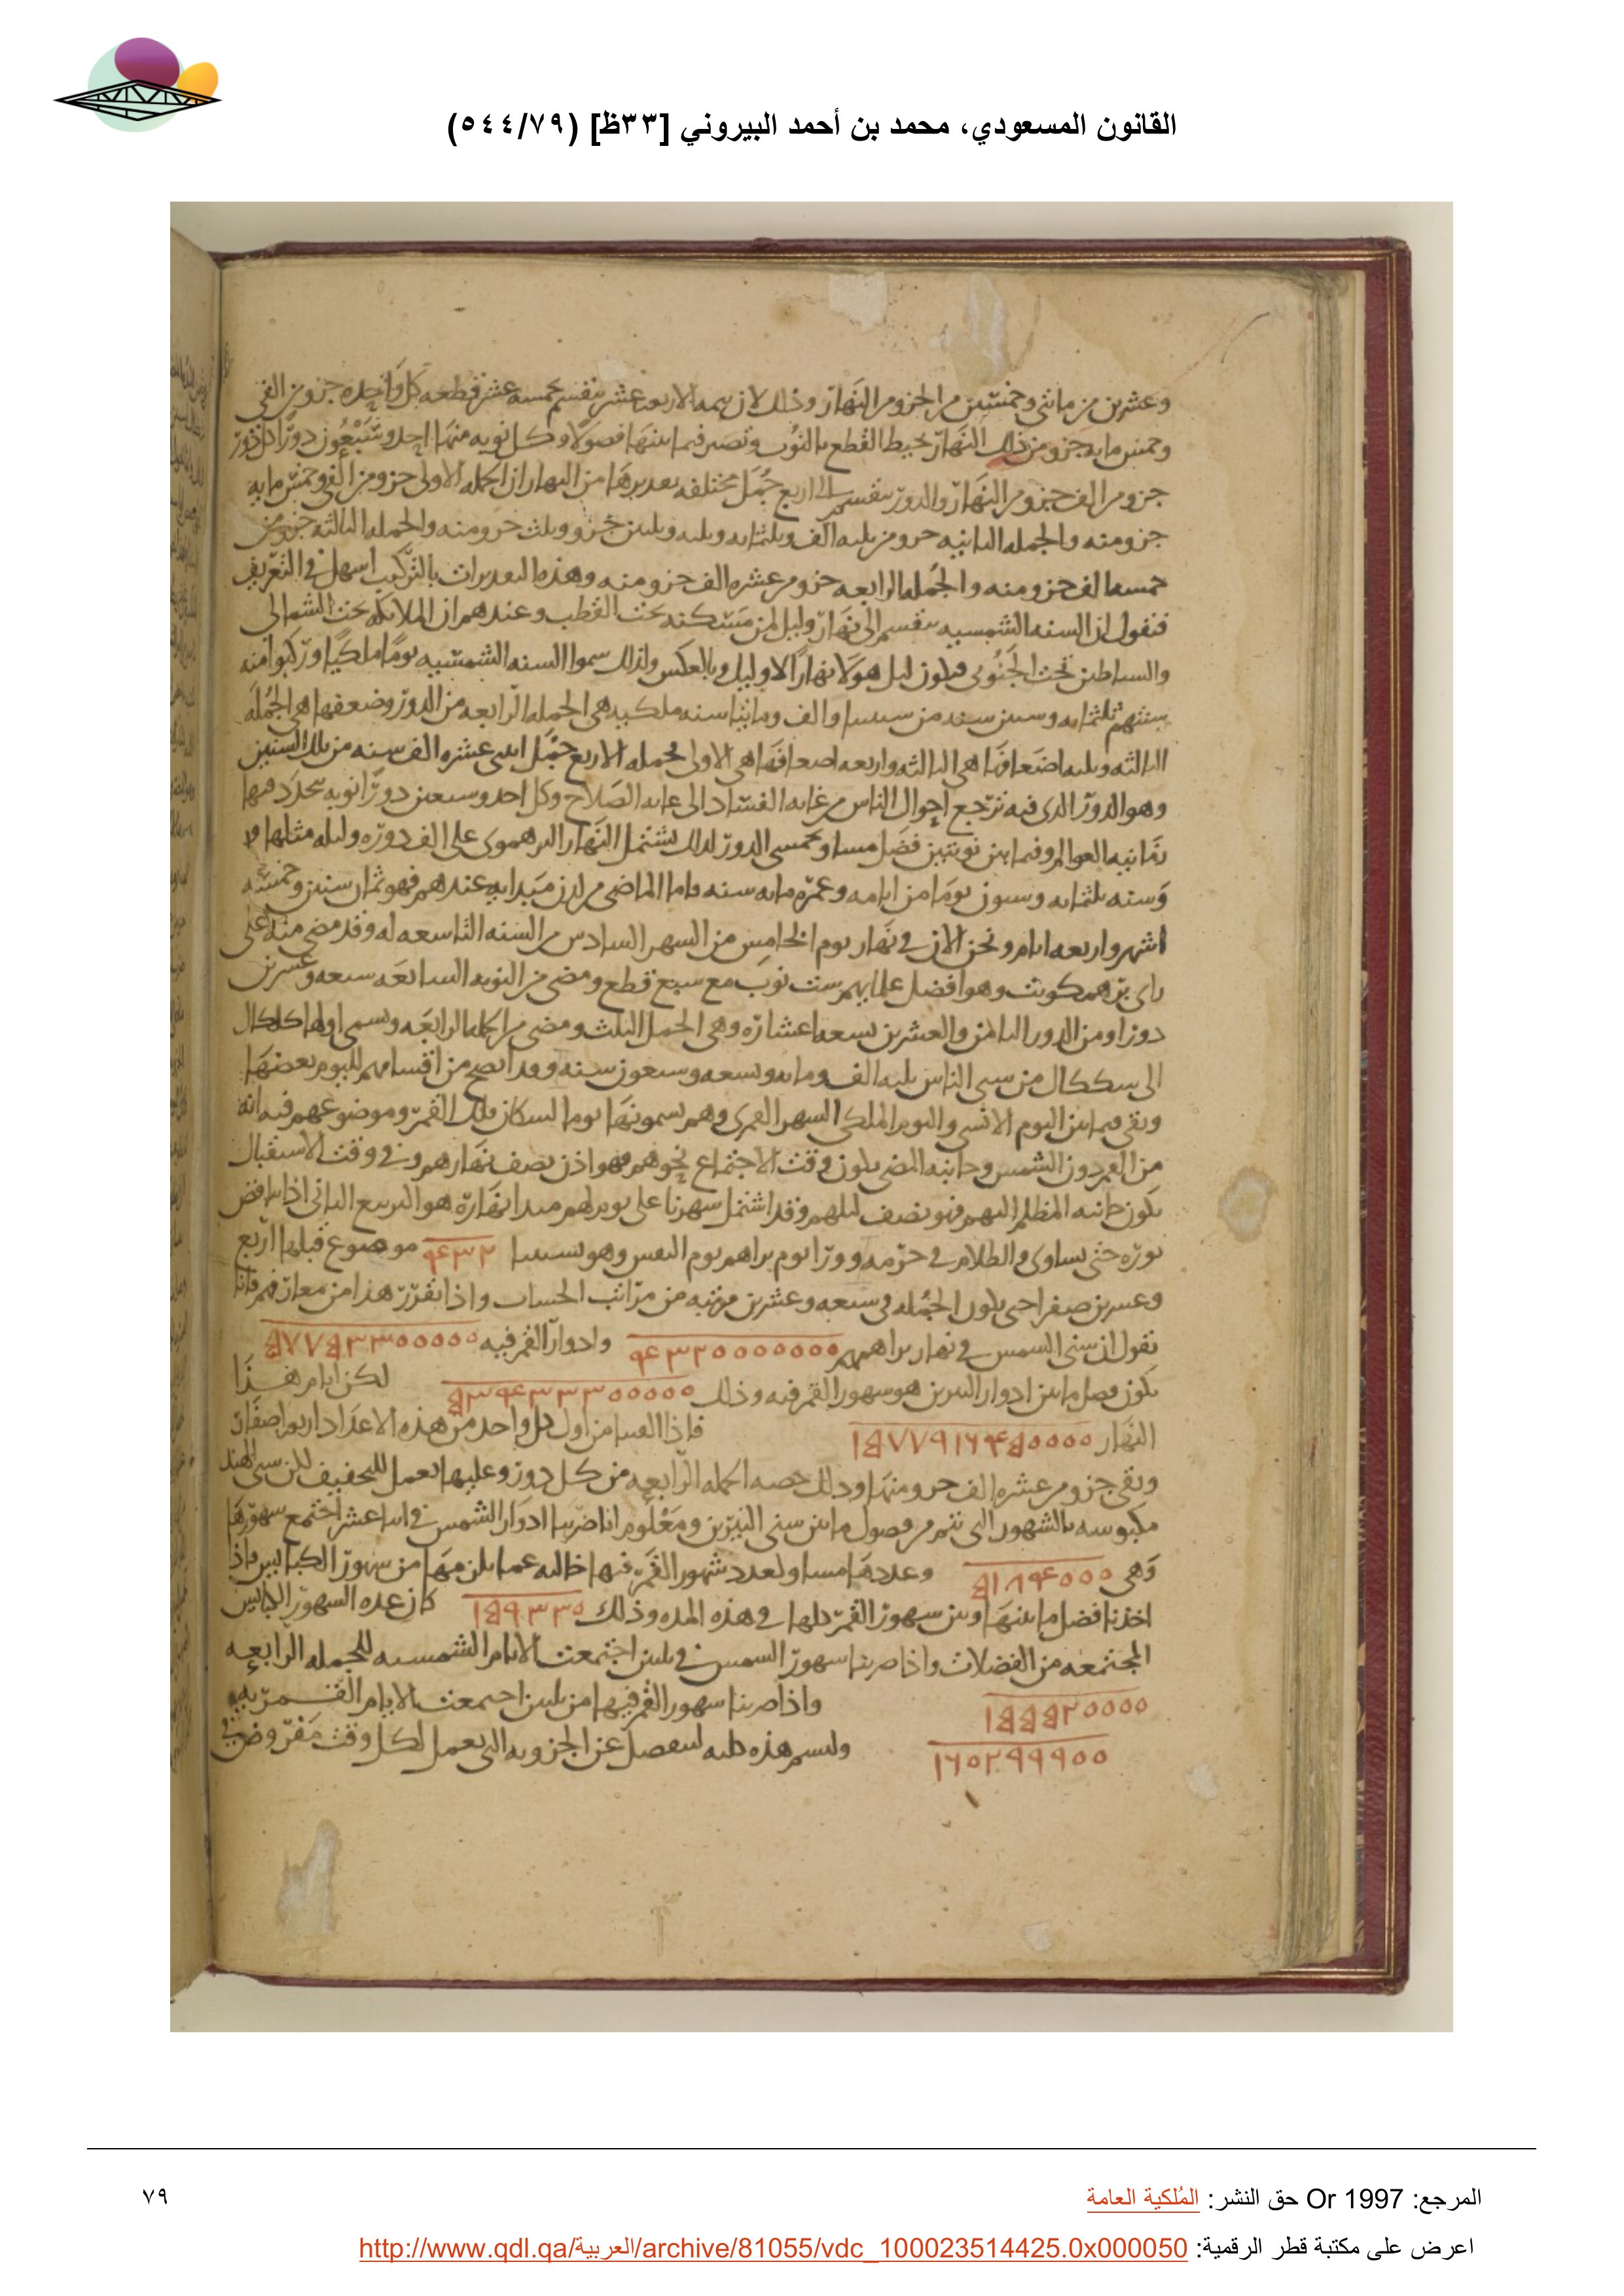 القانون المسعودي، محمد بن أحمد البيروني [٣٣ظ] (٥٤٤/٧٩)
وعشرين من مائتي وخمسين من الجزو من النهار وذلك لان تتمه الاربعه عشر ينقسم بخمسه عشر قطعه كل واحده جزو من الفي
وخمس مايه جزو من ذلك النهار تحيط القطع بالنوب وتصير فيما بينها فصولا وكل نوبه منها احد وسبعون دورا كل دور
جزو من الف جزو من النهار والدور ينقسم الى اربع جمل مختلفه تقديرها من النهار ان الجمله الاولى جزو من الفي وخمس مايه
جزو منه والجمله الثانيه جزو من ثلثه الف وثلثمايه وثلثه وثلثين جزو وثلث جزو منه والجمله الثالثه جزو من
خمسه الف جزو منه والجمله الرابعه جزو من عشره الف جزو منه وهذه التقديرات بالتركيب اسهل في التعريف
فنقول ان السنه الشمسيه تنقسم الى نهار وليل لمن مسكنه تحت القطب وعندهم ان الملائكه تحت الشمالي
والشياطين تحت الجنوبي فيكون ليل هولا نهارا لاوليك وبالعكس ولذلك سموا السنه الشمسيه يوما ملكيا وركبوا منه
سنتهم ثلثمايه وستين سنه من سنينا والف ومائتا سنه ملكيه هي الجمله الرابعه من الدور وضعفها هي الجمله
الثالثه وثلثه اضعافها هي الثالثه واربعه اضعافها هي الاولى فجمله الاربع جمل اثنى عشره الف سنه من تلك السنين
وهو الدور الذى فيه ترجع احوال الناس من غايه الفساد الى غايه الصلاح وكل احد وسبعين دورا نوبه يتجدد فيها
زبانيه العوالم وفيما بين نوبتين فصل مساو لخمسى الدور لذلك يشتمل النهار البرهموى على الف دوره وليله مثلها
وسنته ثلثمايه وستون يوما من ايامه وعمره مايه سنه فاما الماضي من لدن مبدايه عندهم فهو ثمان سنين وخمسه
اشهر واربعه ايام ونحن الان في نهار يوم الخامس من الشهر السادس من السنه التاسعه له وقد مضى منه على
راى برهمكوبت وهو افضل علمايهم ست نوب مع سبع قطع ومضى من النوبه السابعه سبعه وعشرين
دورا ومن الدور الثامن والعشرين تسعه اعشاره وهي الجمل الثلث ومضى من الجمله الرابعه وتسمى اولها كلكال
الى سككال من سنى الناس ثلثه الف ومايه وتسعه وسبعون سنه وقد اتضح من اقسامهم لليوم بعضها
وبقى فيما بين اليوم الانسي واليوم الملكي الشهر القمرى وهم يسمونها يوما لسكان فلك القمر وموضوعهم فيه انه
من القمر دون الشمس وجانبه المضى يكون وقت الاجتماع نحوهم فهو اذن نصف نهارهم وفي وقت الاستقبال
يكون جانبه المظلم اليهم فهو نصف ليلهم وقد اشتمل شهرنا على يوم لهم مبدا نهاره هو التربيع الثانى اذا تناقض
نوره حتى يساوى الظلام في جرمه وورا يوم براهم يوم النفس وهو بسنينا ۴۳۲ موضوع قبلها اربع
وعشرين صفرا حتى يكون الجمله في سبعه وعشرين مرتبه من مراتب الحساب واذا تقرر هذا من معارفهم فانا
نقول ان سنى الشمس في نهار براهم ۴۳۲۰۰۰۰۰۰۰ وادوار القمر فيه ۵۷۷۵۳۳۰۰۰۰۰
يكون فصل ما بين ادوار النيرين هو شهور القمر فيه وذلك ۵۳۴۳۳۳۰۰۰۰۰ لكن ايام هذا
النهار ۱۵۷۷۹۱۶۴۵۰۰۰۰ فاذا القينا من اول كل واحد من هذه الاعداد اربعه اصفار
وبقى جزو من عشره الف جزو منها وذلك حصه الجمله الرابعه من كل دور وعليها يعمل للتخفيف لكن سنى الهند
مكبوسه بالشهور التى تتم من فصول ما بين سنى النيرين ومعلوم انا ضربنا ادوار الشمس في اثنا عشر اجتمع شهورها
وهى ۵۱۸۴۰۰۰ وعددها مساو لعدد شهور القمر فيها خاليه عما يكن منها من شهور الكبايس فاذا
اخذنا فضل ما بينها وبين شهور القمر كلها في هذه المده وذلك ۱۵۹۳۳۰ كان عده الشهور الكبايس
المجتمعه من الفضلات واذا ضربنا شهور الشمس في ثلثين اجتمعت الايام الشمسيه للجمله الرابعه
۱۵۵۵۲۰۰۰۰ واذا ضربنا شهور القمر فيها من ثلثين اجتمعت الايام القمريه
۱۶۰۲۹۹۹۰۰ ولنسم هذه كليه لتنفصل عن الجزويه التى يعمل لكل وقت مفروض في
المرجع: Or 1997 حق النشر: المُلكية العامة
٧٩
اعرض على مكتبة قطر الرقمية: http://www.qdl.qa/العربية/archive/81055/vdc_100023514425.0x000050